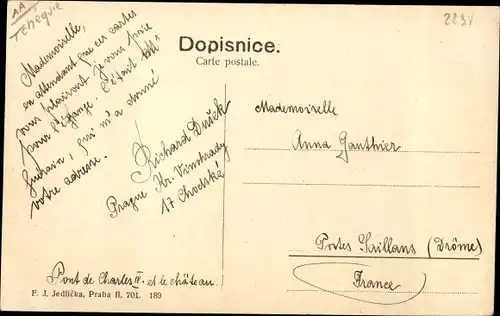 AA
Tcheque
2234
Dopisnice.
Carte postale.
Mademoiselle,
en attendant que ces cartes
vous plairont je vous prie
pour l'échange. C'était Mll
qui m'a donné
votre adresse.
Richard Dušek
Prague Kr. Vinohrady
17 Chodská
Mademoiselle
Anna Gauthier
Portes Saillans (Drôme)
France
Pont de Charles IV. et le château.
F. J. Jedlička, Praha II. 701. 189